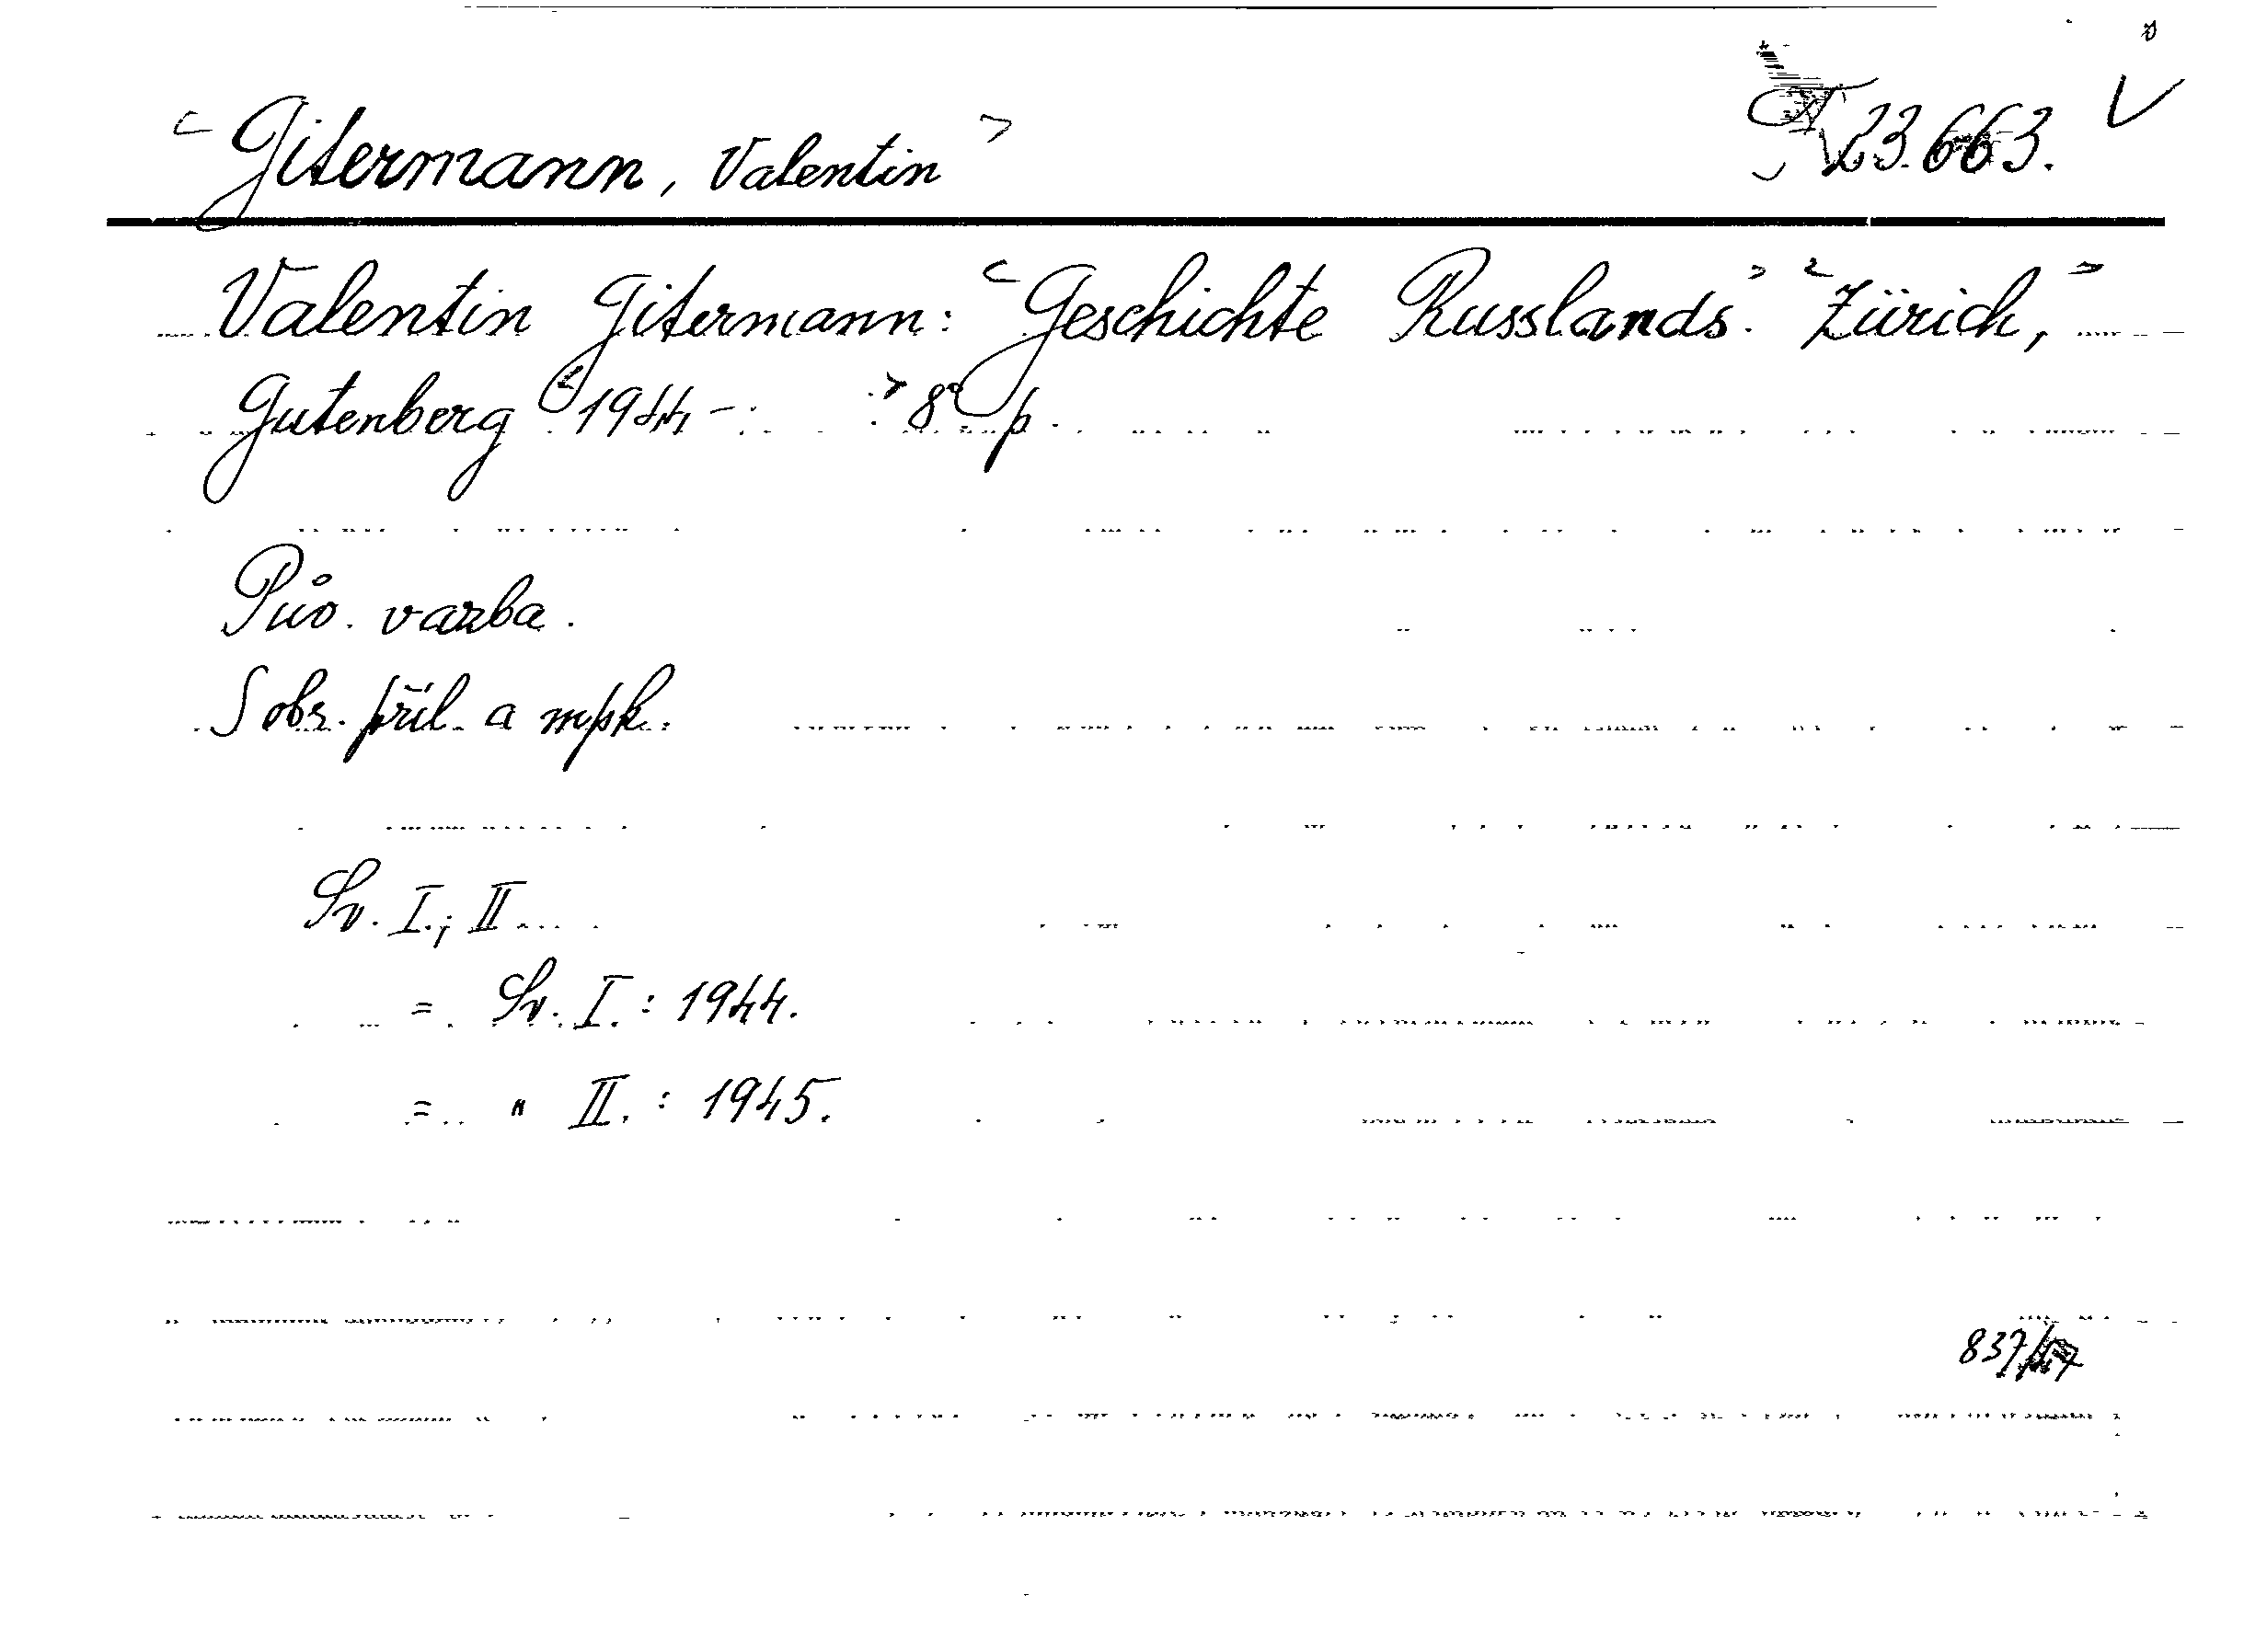 <Gitermann, Valentin> 23.663. V
Valentin Gitermann: <Geschichte Russlands.> <Zürich,>
Gutenberg <1944 - > 8° p.
Pův. vazba.
S obr. příl. a mpk.
Sv. I.; II...
= Sv. I. : 1944.
= " II. : 1945.
837/